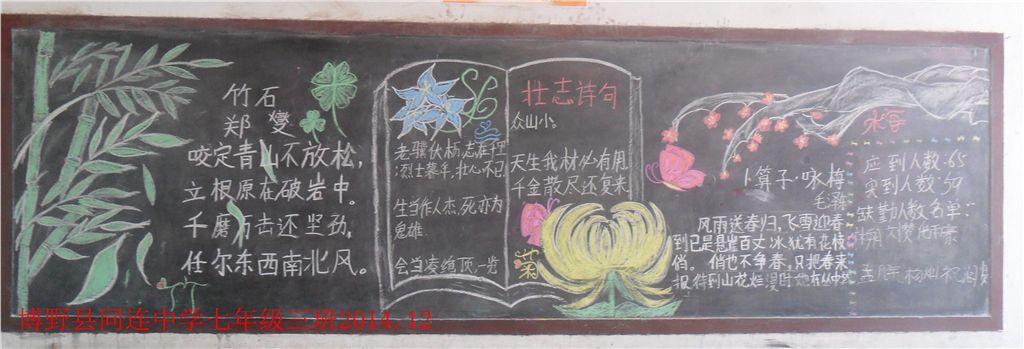 竹石
郑燮
咬定青山不放松,
立根原在破岩中。
千磨万击还坚劲,
任尔东西南北风。
竹
老骥伏枥,志在千里
烈士暮年,壮心不已
生当作人杰,死亦为
鬼雄
会当凌绝顶,一览
壮志诗句
众山小。
天生我材必有用
千金散尽还复来
菊
卜算子·咏梅
毛泽东
风雨送春归,飞雪迎春
到已是悬崖百丈冰,犹有花枝
俏。俏也不争春,只把春来
报,待到山花烂漫时她在丛中
应到人数:65
实到人数:59
缺勤人数名单:
博野县同连中学七年级三班2014.12